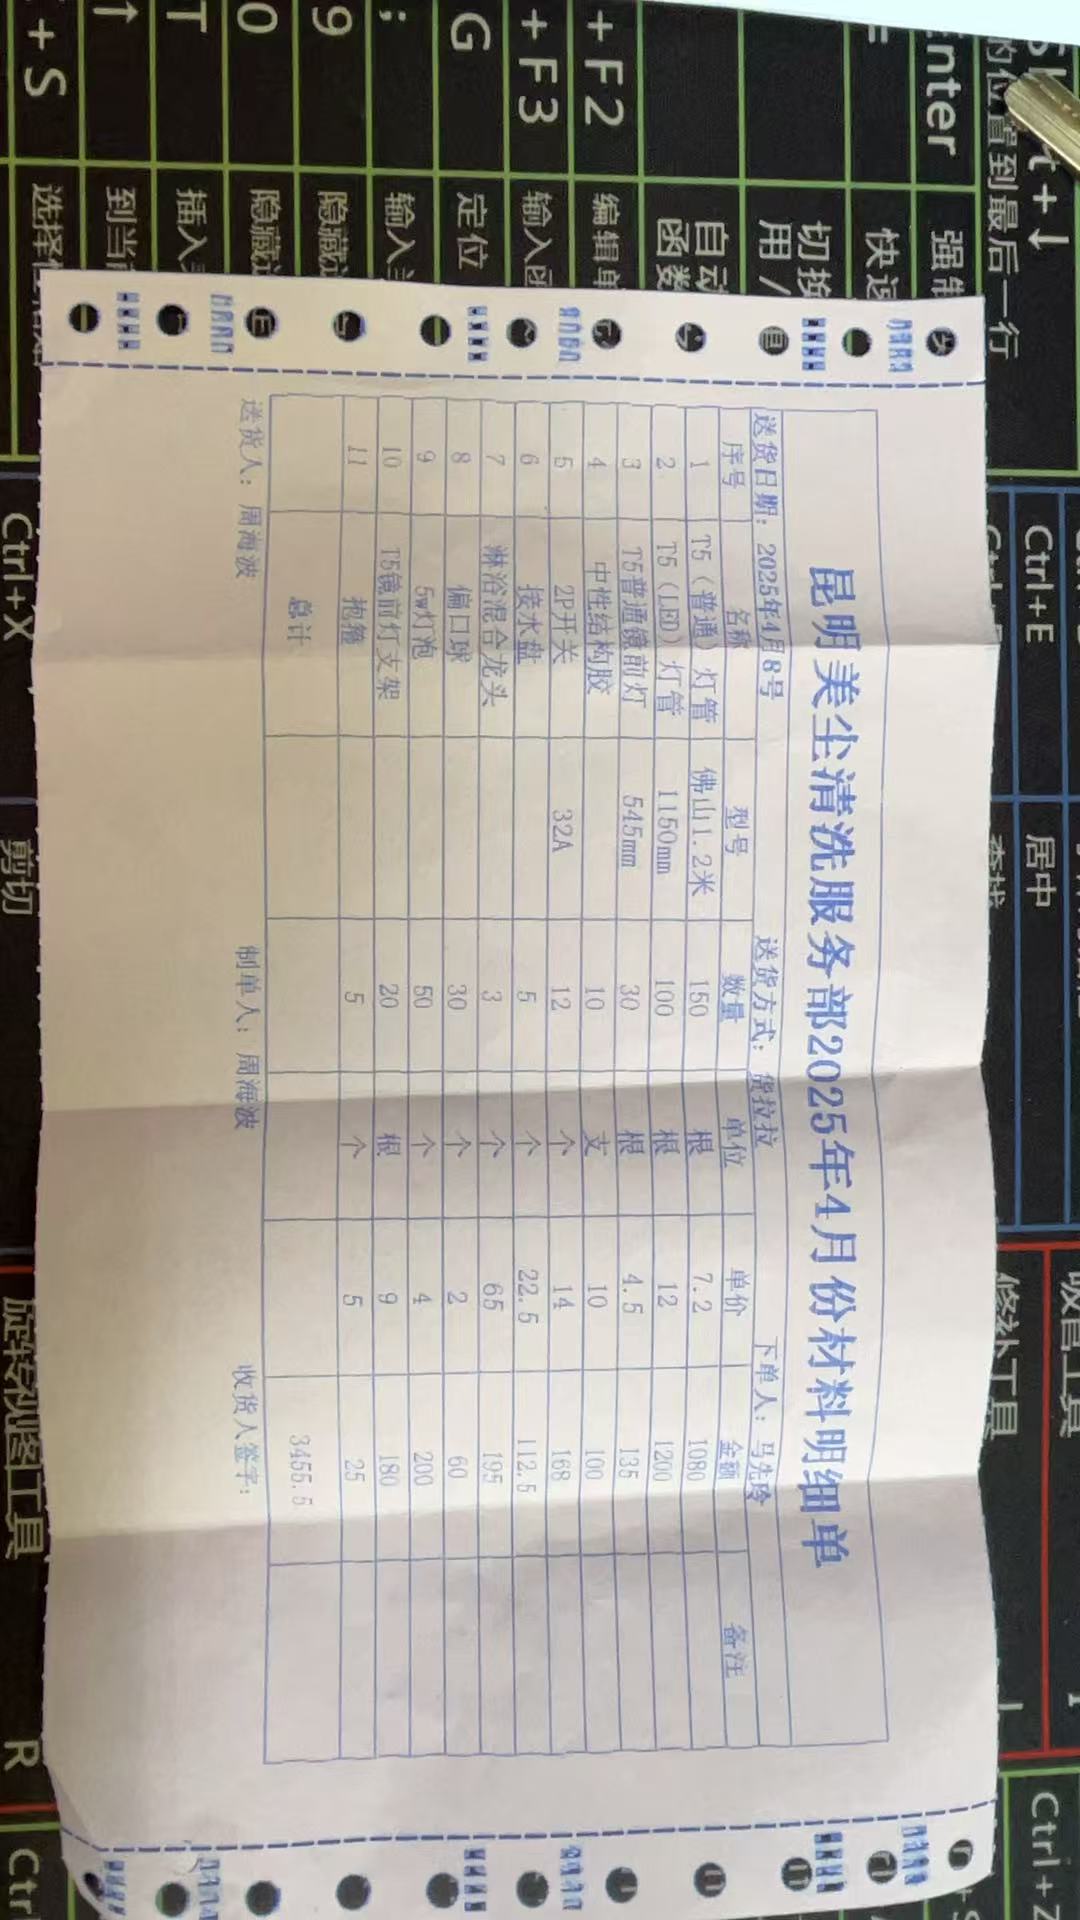 昆明美尘清洗服务部2025年4月份材料明细单
送货日期：2025年4月8号 送货方式：货拉拉 下单人：马先玲
序号 名称 型号 数量 单位 单价 金额 备注
1 T5（普通）灯管 佛山1.2米 150 根 7.2 1080
2 T5（LED）灯管 1150mm 100 根 12 1200
3 T5普通镜前灯 545mm 30 根 4.5 135
4 中性结构胶 10 支 10 100
5 2P开关 32A 12 个 14 168
6 接水盘 5 个 22.5 112.5
7 淋浴混合龙头 3 个 65 195
8 偏口球 30 个 2 60
9 5w灯泡 50 个 4 200
10 T5镜前灯支架 20 根 9 180
11 抱箍 5 个 5 25
总计 3455.5
送货人：周海波 制单人：周海波 收货人签字：
+ S
T
0
9
;
G
+ F3
+ F2
Enter
选择
到当
插入
隐藏
隐藏
输入
定位
输入
编辑单
自动
函数
切换
用 /
快速
强制
的位置到最后一行
Ctrl+E
居中
查找
Ctrl+X
剪切
旋转视图工具
R
吸管工具
修补工具
Ctrl+Z
Ctr